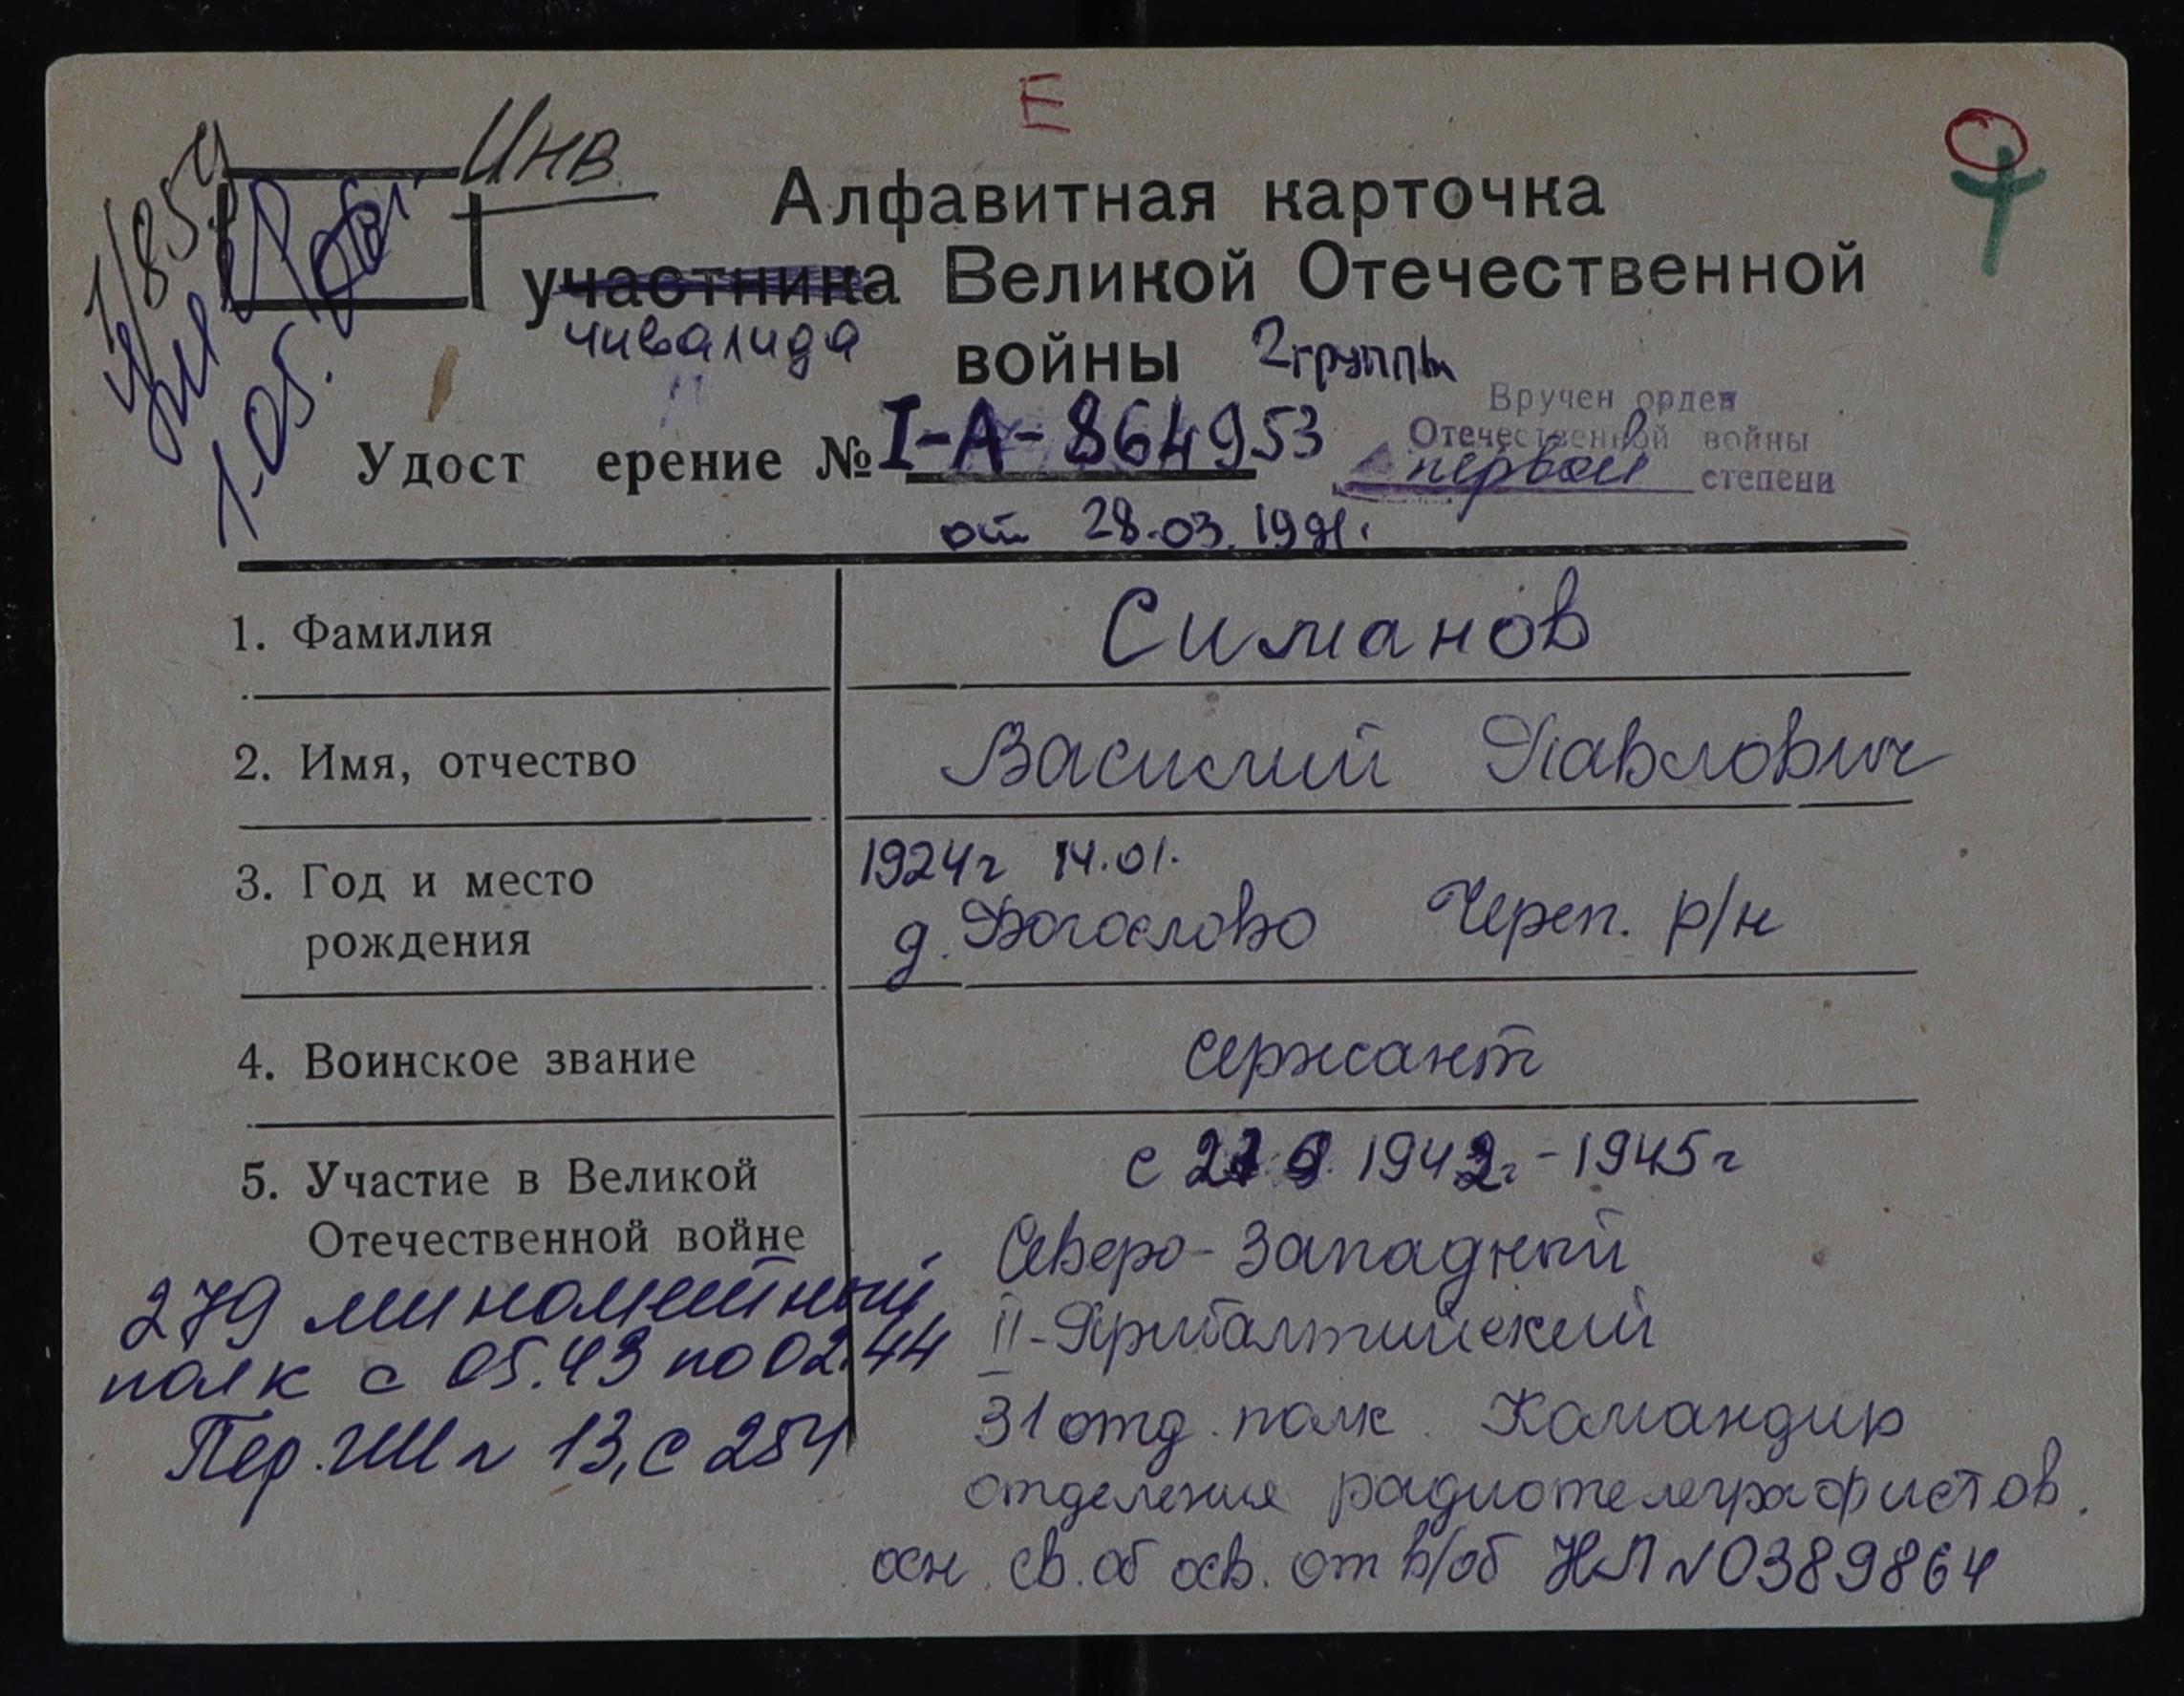 Е
Инв.
1/859
1.05.
Алфавитная карточка
участника Великой Отечественной
инвалида войны 2 группы
Вручен орден
Отечественной войны
первой степени
Удост ерение № I-А-864953
от 28.03.1991.
1. Фамилия Симанов
2. Имя, отчество Василий Павлович
3. Год и место 1924г 14.01.
рождения д. Богослово Череп. р/н
4. Воинское звание сержант
5. Участие в Великой с 1942г - 1945г
Отечественной войне Северо-Западный
279 миномётный
полк с 05.43 по 02.44
II-Прибалтийский
Пер. № 13, с 254
31 отд. полк. Командир
отделения радиотелеграфистов.
осн. св. об осв. от в/об НЛ № 0389864